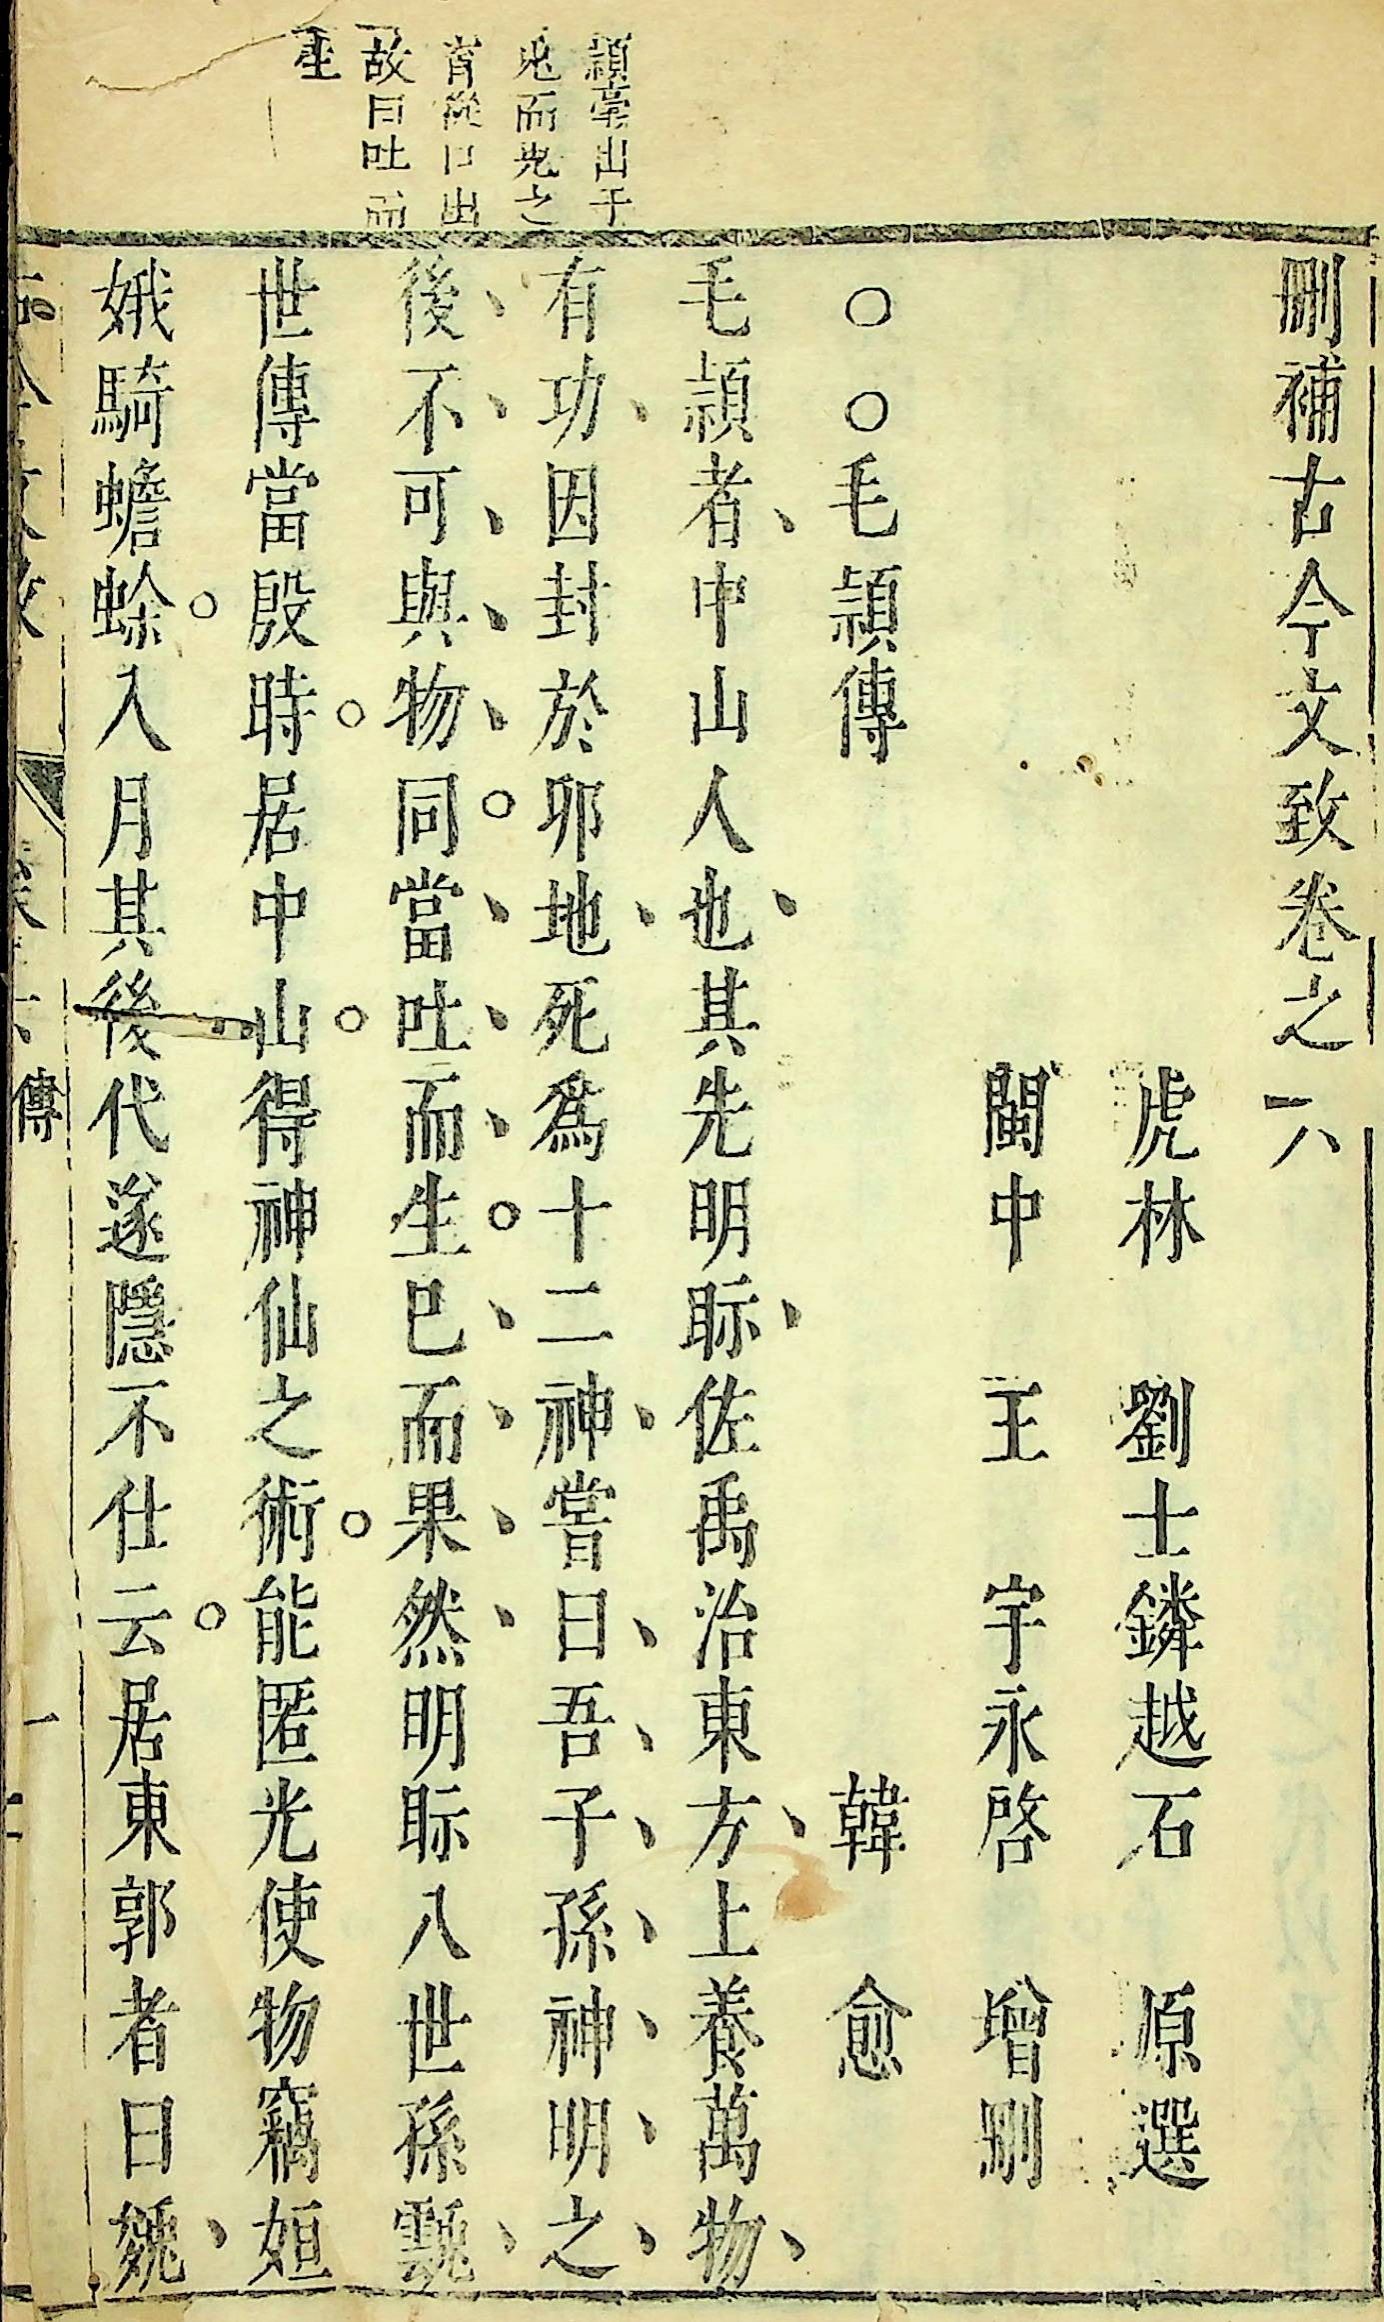 刪補古今文致卷之六
虎林 劉士鏻越石 原選
閩中 王宇永啓 增刪
○○毛頴傳 韓愈
毛頴者中山人也其先明眎佐禹治東方上養萬物
有功因封於卯地死爲十二神嘗曰吾子孫神明之
後不可與物同當吐而生巳而果然明眎八世孫䨲
世傳當殷時居中山得神仙之術能匿光使物竊姮
娥騎蟾蜍入月其後代遂隱不仕云居東郭者曰㕙
頴毫出于
兎而兎之
育從口出
故曰吐而
生
傳